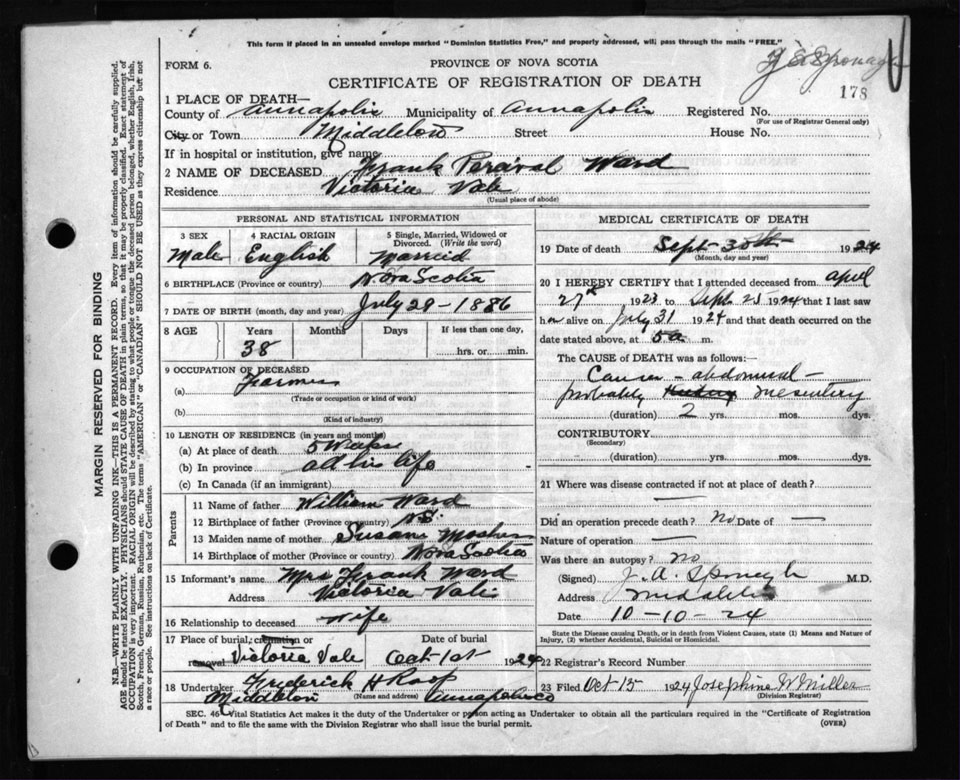 This form if placed in an unsealed envelope marked "Dominion Statistics Free," and properly addressed, will pass through the mails "FREE."
FORM 6.
PROVINCE OF NOVA SCOTIA
CERTIFICATE OF REGISTRATION OF DEATH
178
1 PLACE OF DEATH—
County of Annapolis Municipality of Annapolis Registered No.
(For use of Registrar General only)
City or Town Middleton Street House No.
If in hospital or institution, give name
2 NAME OF DECEASED Frank Percival Ward
Residence Victoria Vale
(Usual place of abode)
PERSONAL AND STATISTICAL INFORMATION
3 SEX 4 RACIAL ORIGIN 5 Single, Married, Widowed or Divorced. (Write the word)
Male English Married
6 BIRTHPLACE (Province or country) Nova Scotia
7 DATE OF BIRTH (month, day and year) July 29-1886
8 AGE Years Months Days If less than one day,
38 hrs. or min.
9 OCCUPATION OF DECEASED
(a) Farmer
(Trade or occupation or kind of work)
(b)
(Kind of industry)
10 LENGTH OF RESIDENCE (in years and months)
(a) At place of death 5 Weeks
(b) In province all his life
(c) In Canada (if an immigrant)
Parents
11 Name of father William Ward
12 Birthplace of father (Province or country) N.S.
13 Maiden name of mother Susan Mosher
14 Birthplace of mother (Province or country) Nova Scotia
15 Informant's name Mrs Frank Ward
Address Victoria Vale
16 Relationship to deceased Wife
17 Place of burial, cremation or removal Date of burial
Victoria Vale Oct 1st 1924
18 Undertaker Frederick H Roop
(Name and address)
Middleton Annapolis Co
MEDICAL CERTIFICATE OF DEATH
19 Date of death Sept 30th 1924
(Month, day and year)
20 I HEREBY CERTIFY that I attended deceased from April
27th 1923 to Sept 25 1924 that I last saw
h alive on July 31 1924 and that death occurred on the
date stated above, at 5a m.
The CAUSE of DEATH was as follows:
Cancer - abdominal -
probably mesentery
(duration) 2 yrs. mos. dys.
CONTRIBUTORY
(Secondary)
(duration) yrs. mos. dys.
21 Where was disease contracted if not at place of death?
—
Did an operation precede death? No Date of —
Nature of operation —
Was there an autopsy? no
(Signed) J. A. Sponagle M.D.
Address Middleton
Date 10-10-24
State the Disease causing Death, or in death from Violent Causes, state (1) Means and Nature of
Injury, (2) whether Accidental, Suicidal or Homicidal.
22 Registrar's Record Number
23 Filed Oct 15 1924 Josephine W Miller
(Division Registrar)
SEC. 46 Vital Statistics Act makes it the duty of the Undertaker or person acting as Undertaker to obtain all the particulars required in the "Certificate of Registration
of Death" and to file the same with the Division Registrar who shall issue the burial permit. (OVER)
MARGIN RESERVED FOR BINDING
N.B.—WRITE PLAINLY WITH UNFADING INK—THIS IS A PERMANENT RECORD. Every item of information should be carefully supplied.
AGE should be stated EXACTLY. PHYSICIANS should STATE CAUSE OF DEATH in plain terms, so that it may be properly classified. Exact statement of
OCCUPATION is very important. RACIAL ORIGIN will be described by stating to what people or tongue the deceased person belonged, whether English, Irish,
Scotch, French, German, Russian, Ruthenian, etc. The terms "AMERICAN" or "CANADIAN" SHOULD NOT BE USED as they express citizenship but not
a race or people. See instructions on back of Certificate.